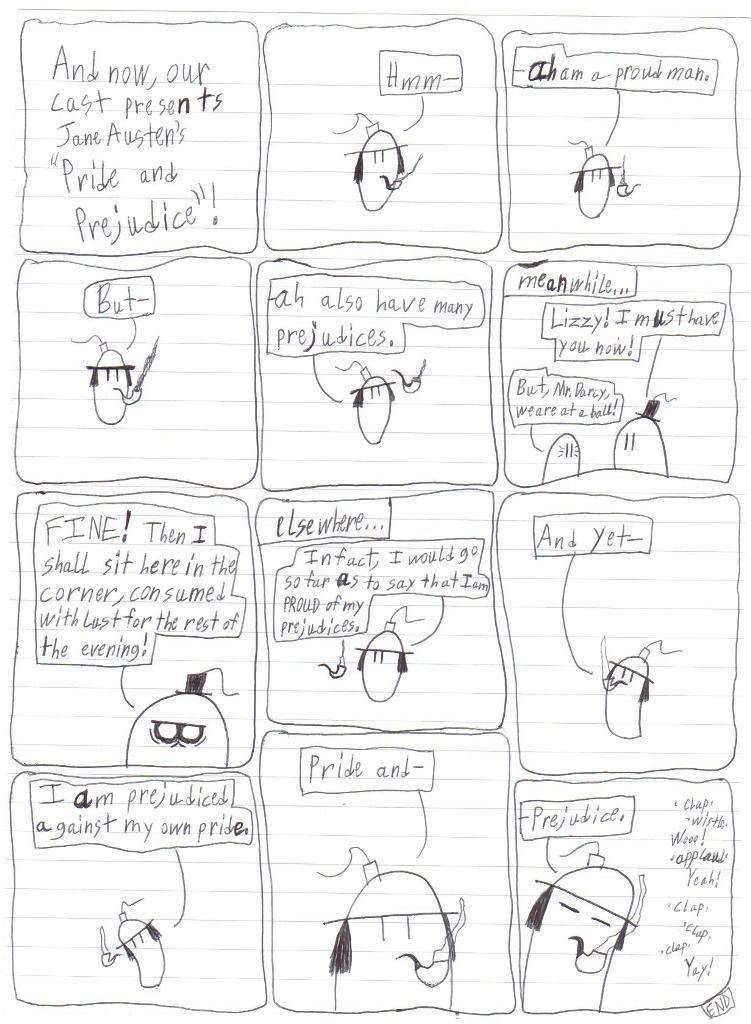 And now, our
cast presents
Jane Austen's
"Pride and
Prejudice"!
Hmm-
-aham a proud man.
But-
-ah also have many
prejudices.
meanwhile...
Lizzy! I must have
you now!
But, Mr. Darcy,
we are at a ball!
FINE! Then I
shall sit here in the
corner, consumed
with lust for the rest of
the evening!
elsewhere...
In fact, I would go
so far as to say that I am
PROUD of my
prejudices.
And Yet-
I am prejudiced
against my own pride.
Pride and-
-Prejudice.
*clap*
Wooo!
Yeah!
*clap*
*clap*
*clap*
Yay!
END